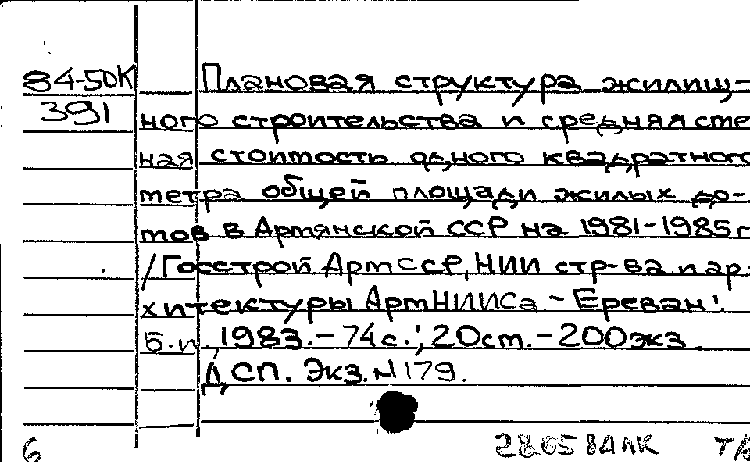 84-50К Плановая структура жилищ-
391 ного строительства и средняя сме
ная стоимость одного квадратного
метра общей площади жилых до-
мов в Армянской ССР на 1981-1985г
/Госстрой АрмССР, НИИ стр-ва и ар-
хитектуры АрмНИИСа - Ереван:
Б.и, 1983. - 74с.; 20см. - 200экз.
ДСП. Экз. N179.
6 28.05 84